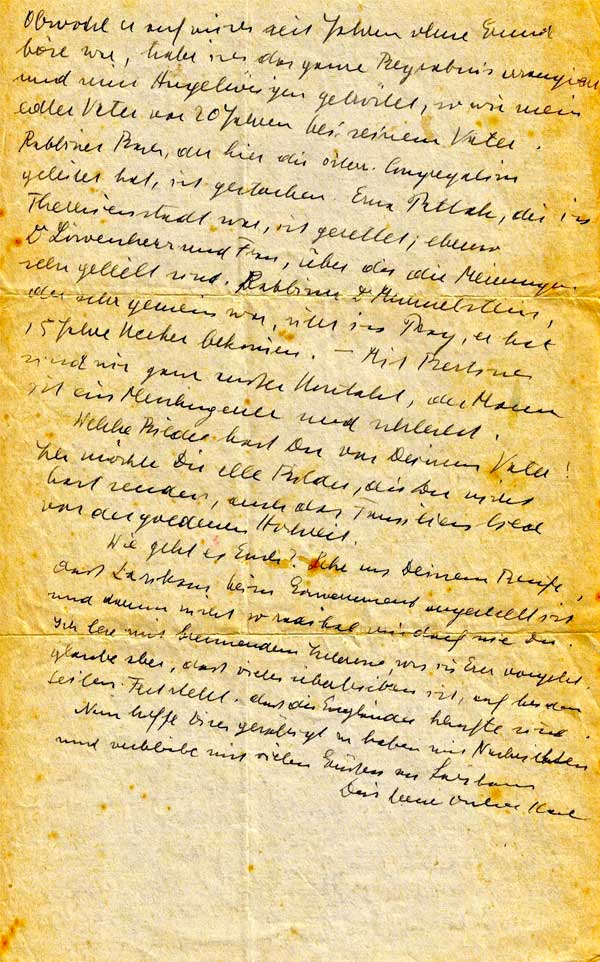 Obwohl er auf mich seit Jahren ohne Grund
böse war, habe ich das ganze Begräbnis arrangiert
und mein Angehörigen getröstet, so wie mein
edler Vater vor 20 Jahren bei seinem Vater.
Rabbiner Bauer, der hier die österr. Congregation
geleitet hat, ist gestorben. Erna Patlak, die in
Theresienstadt war, ist gerettet; ebenso
Dr Löwenherz und Frau, über das die Meinungen
sehr geteilt sind. Rabbiner Dr Murmelstein,
der sehr gemein war, sitzt in Prag, er hat
15 Jahre Kerker bekommen. – Mit Berliner
sind wir ganz außer Kontakt, der Mann
ist ein Ungeheuer und schlecht.
Welche Bilder hast Du von Deinem Vater?
Ich möchte Dir alle Bilder, die Du nicht
hast senden, auch das Familienbild
von der goldenen Hochzeit.
Wie geht es Euch? Sehe aus Deinem Briefe,
dass beim Government angestellt ist
und darum nicht so radikal sein darf wie Du.
Ich lese mit brennendem Interesse, was in Erez vorgeht,
glaube aber, dass vieles übertrieben ist, auf beiden
Seiten. Feststeht, dass die Engländer sind.
Nun hoffe Dich gesättigt zu haben mit Nachrichten
und verbleibe mit vielen Grüßen an
Dein Onkel